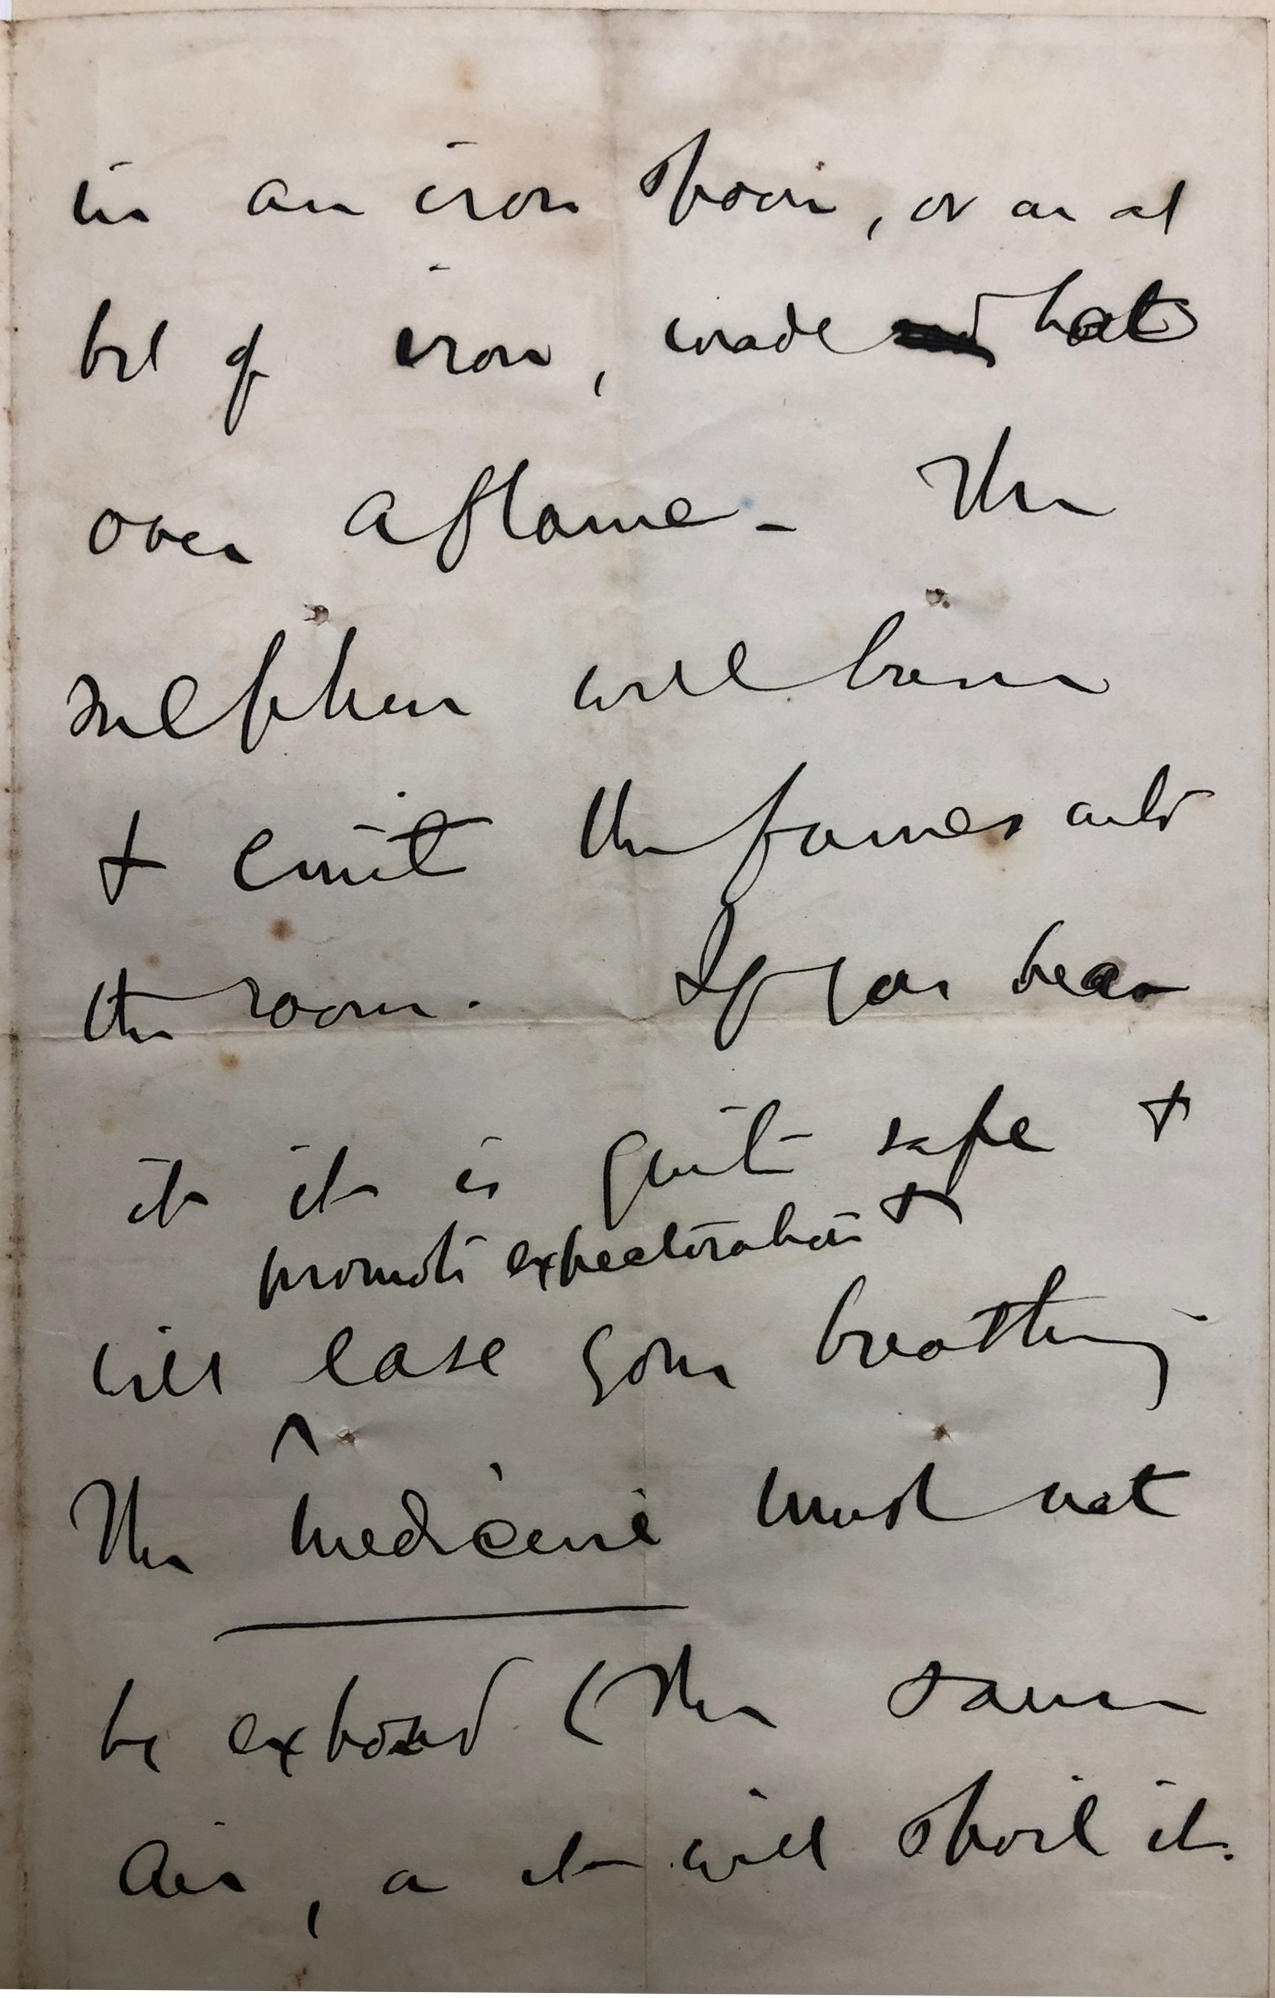 in an iron spoon, or an old
bit of iron, made hot
over a flame - The
sulphur will burn
& emit the fumes into
the room. If you bear
it it is quite safe &
promote expectoration &
will ease your breathing
The medicine must not
be exposed (the same
Air, as it will spoil it.